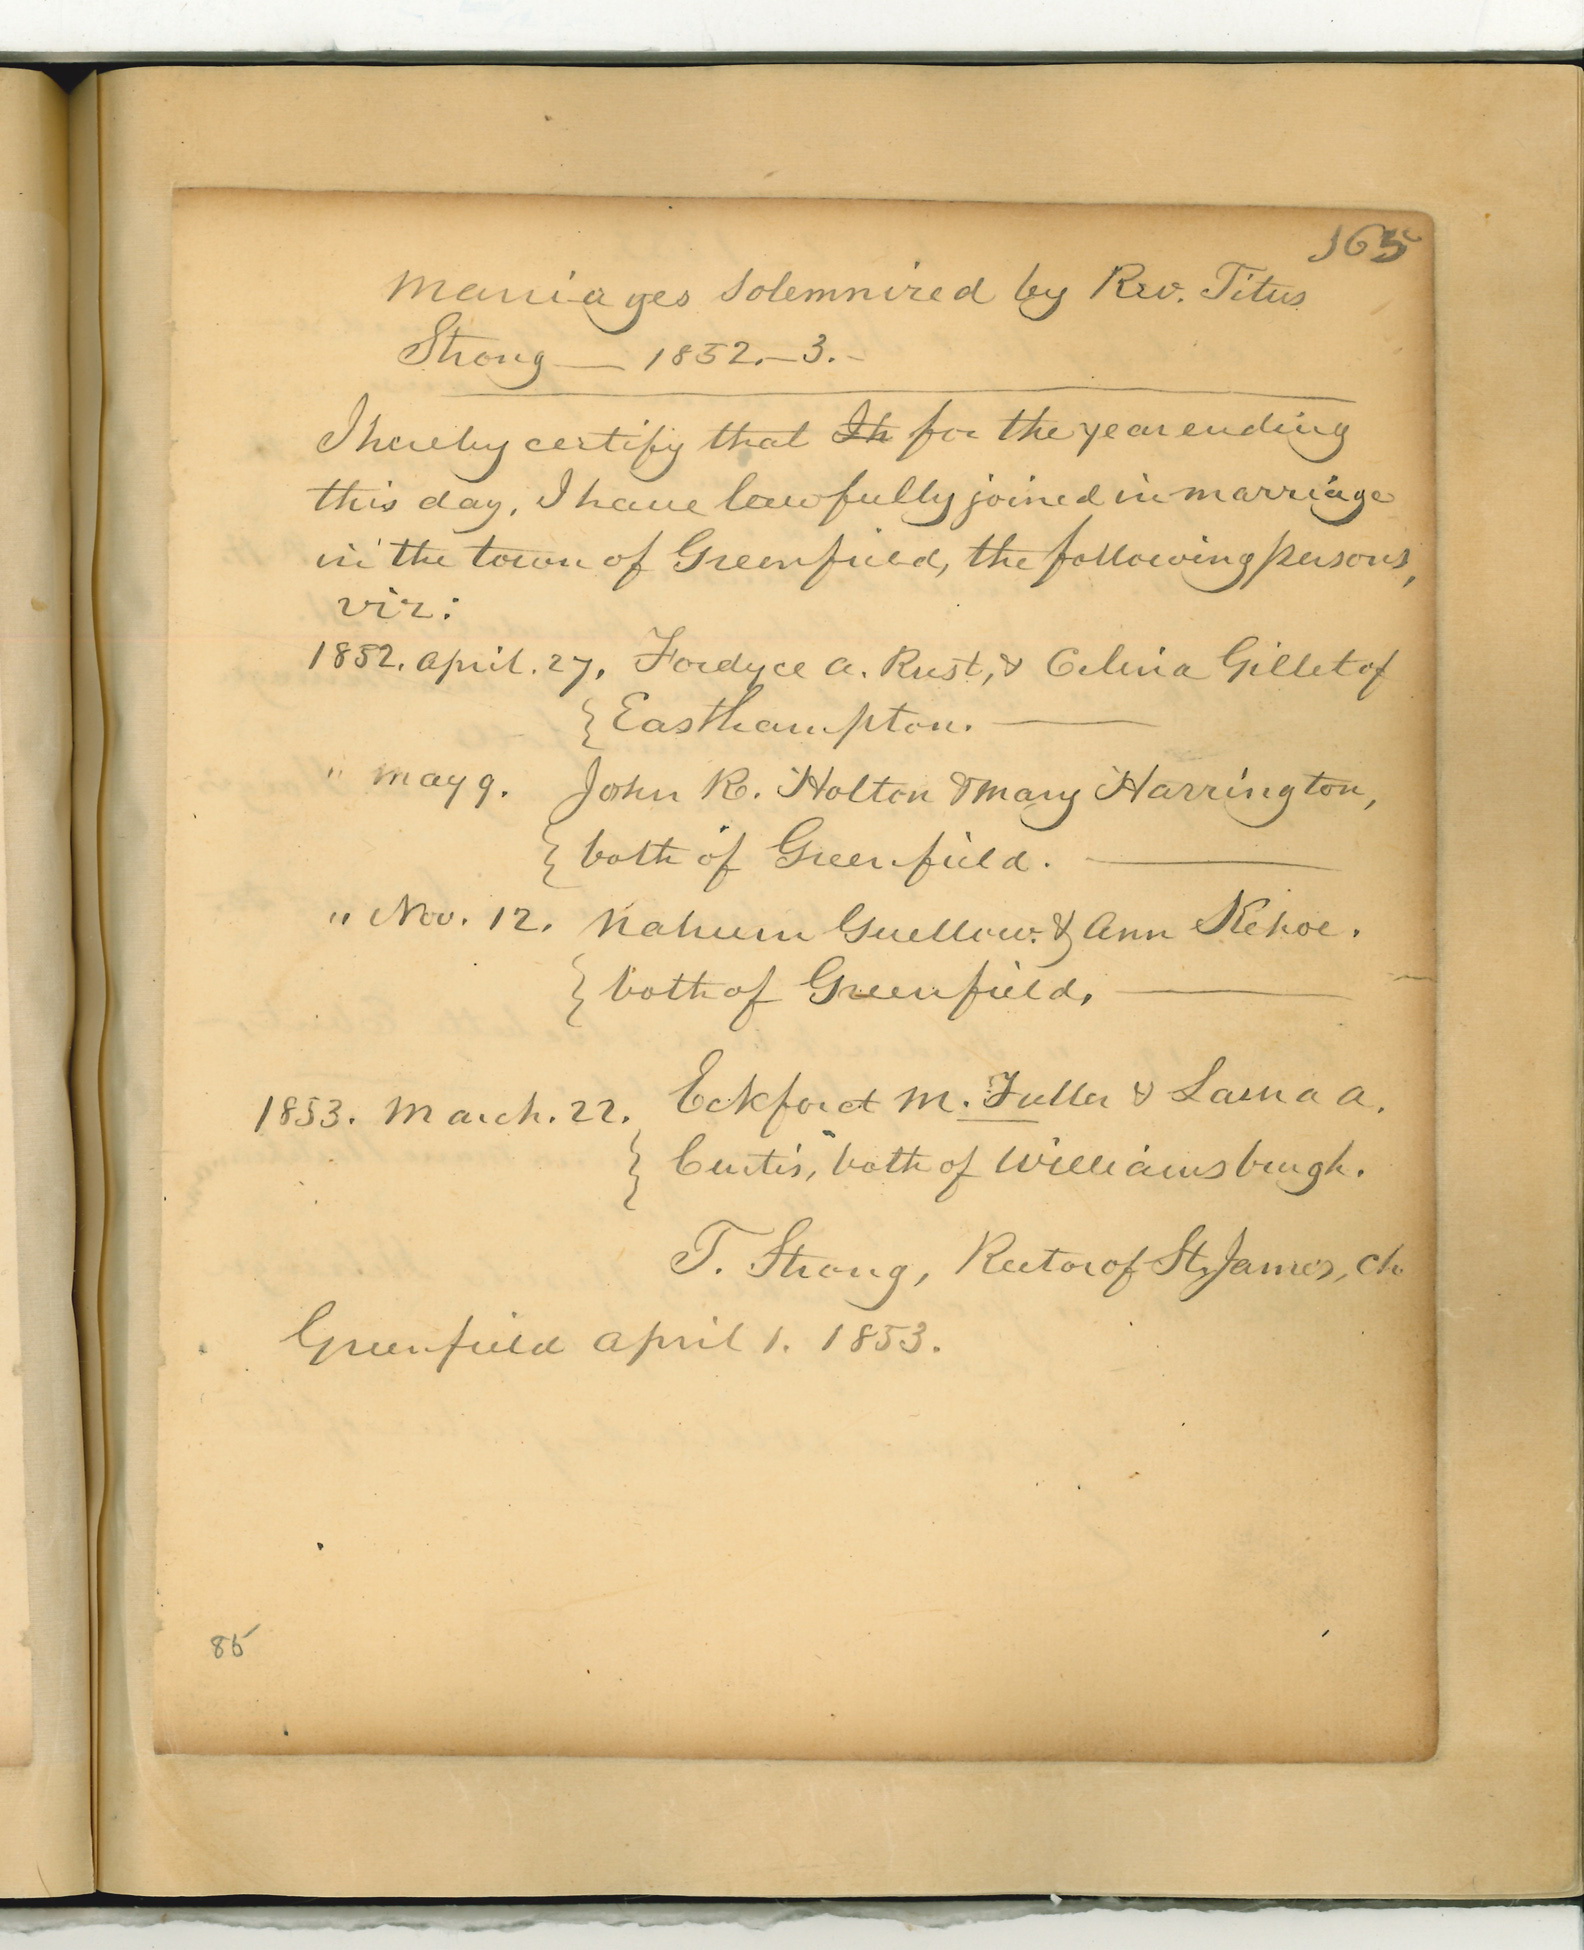 365
Marriages solemnized by Rev. Titus
Strong — 1852.–3. –
I hereby certify that Ih for the year ending
this day, I have lawfully joined in marriage
in the town of Greenfield, the following persons,
viz:
1852. April. 27, Fordyce A. Rust, & Celina Gillet of
{ Easthampton. —
" May 9. John R. Holton & Mary Harrington,
{ both of Greenfield. —
" Nov. 12. Nahum Guellow. & Ann Kehoe.
{ both of Greenfield, —
1853. March. 22. Eckford M. Fuller & Laura A.
{ Curtis, both of Williamsburgh.
T. Strong, Rector of St. James, Ch
Greenfield April 1. 1853.
85